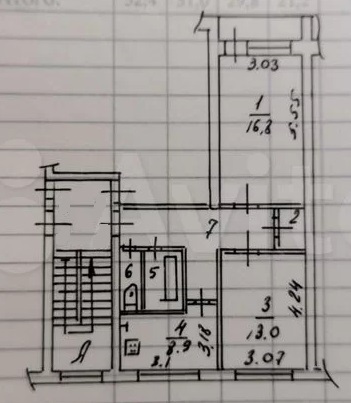 3.03
1
16,8
5.55
7
2
6
5
3
13.0
4.24
3.07
4
3.18
3.1
Л
Avito